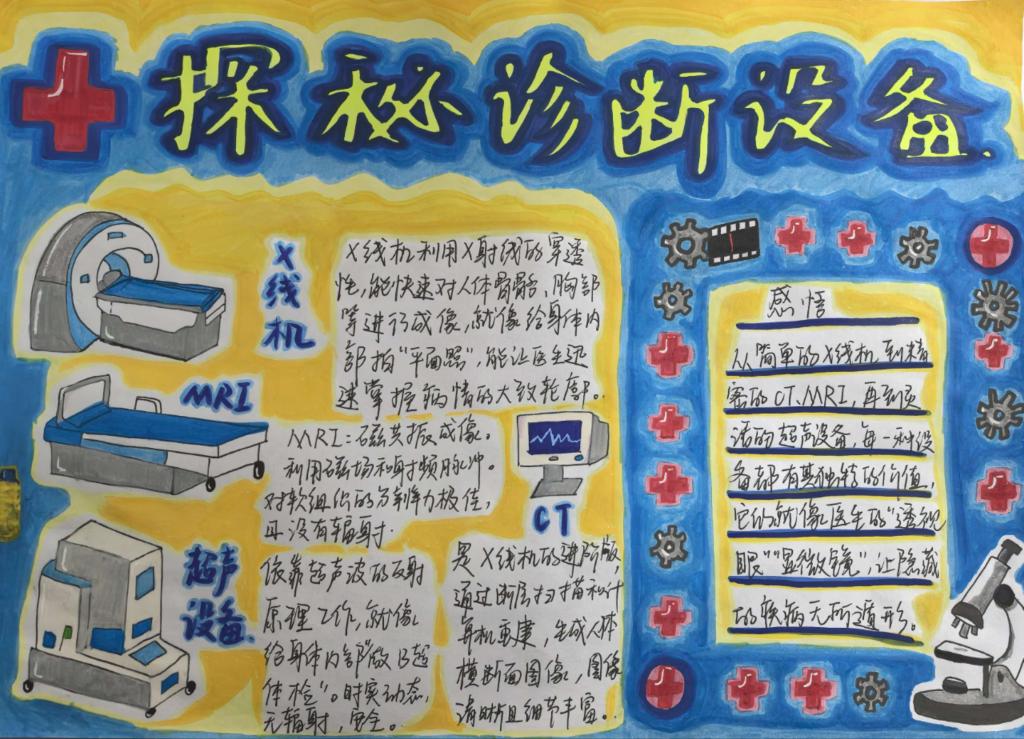 探秘诊断设备.
X线机
X线机利用X射线的穿透
性,能快速对人体骨骼、胸部
等进行成像,就像给身体内
部拍“平面照”,能让医生迅
速掌握病情的大致轮廓。
MRI
MRI:磁共振成像。
利用磁场和射频脉冲。
对软组织的分辨力极佳,
且没有辐射.
超声
设备.
依靠超声波的反射
原理工作,就像
给身体内部做B超
体检”。时实动态,
无辐射,安全。
CT
是X线机的进阶版,
通过断层扫描和计
算机重建,生成人体
横断面图像,图像
清晰且细节丰富。
感悟
从简单的X线机,到精
密的CT、MRI,再到灵
活的超声设备,每一种设
备都有其独特的价值,
它们就像医生的“透视
眼”“显微镜”,让隐藏
的疾病无所遁形。